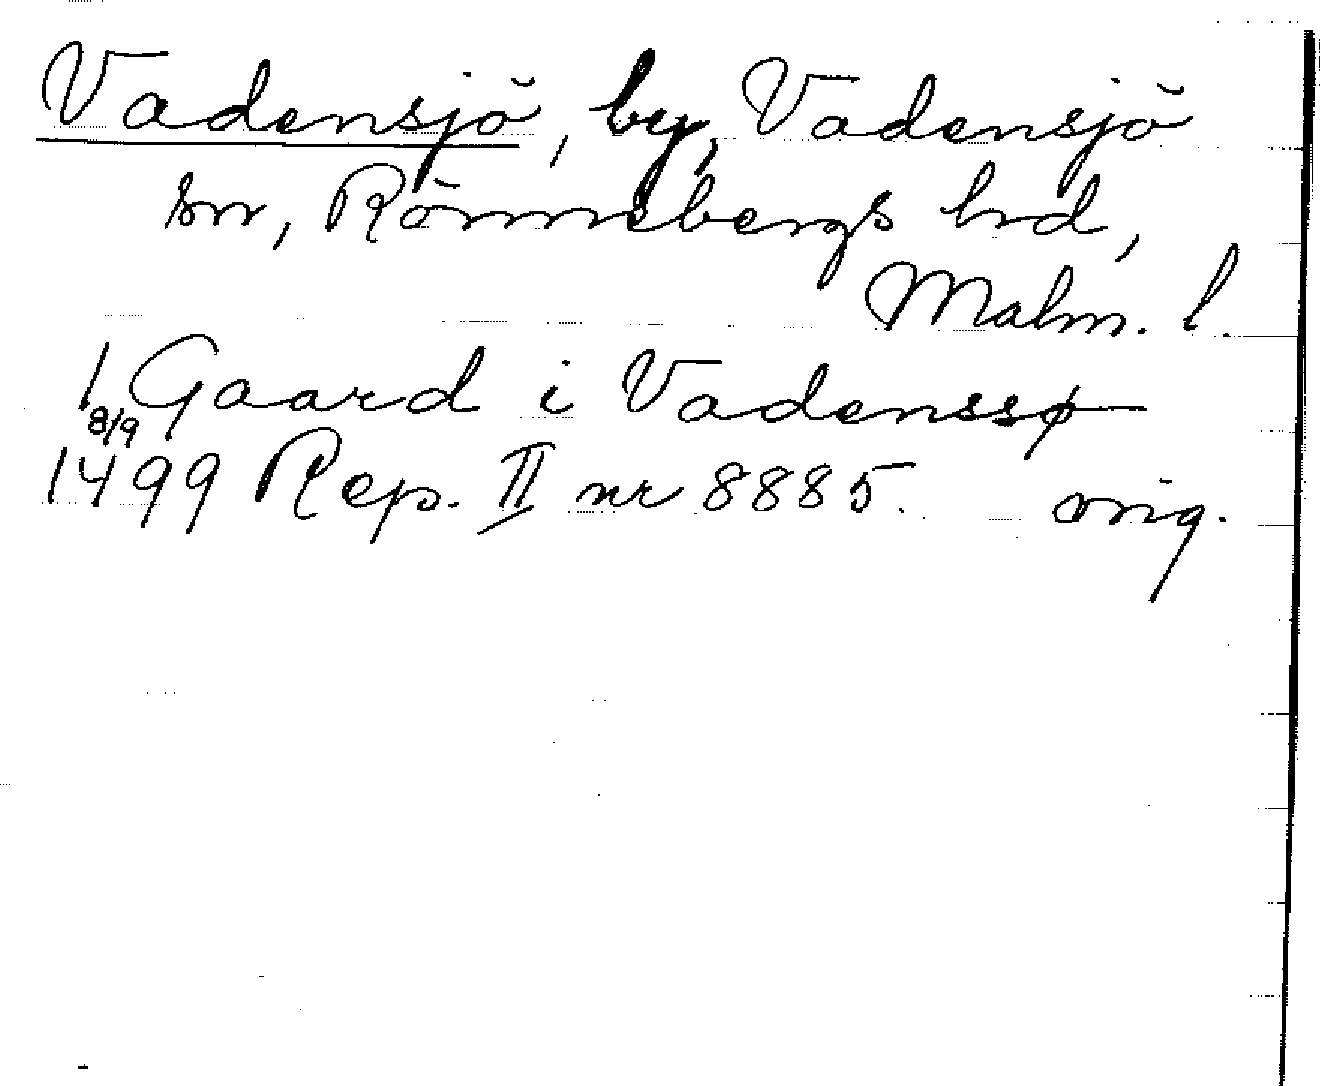 Vadensjö, by, Vadensjö
sn, Rönnebergs hrd,
Malm. l.
1 Gaard i Vadenssø
8/9
1499 Rep. II nr 8885. orig.